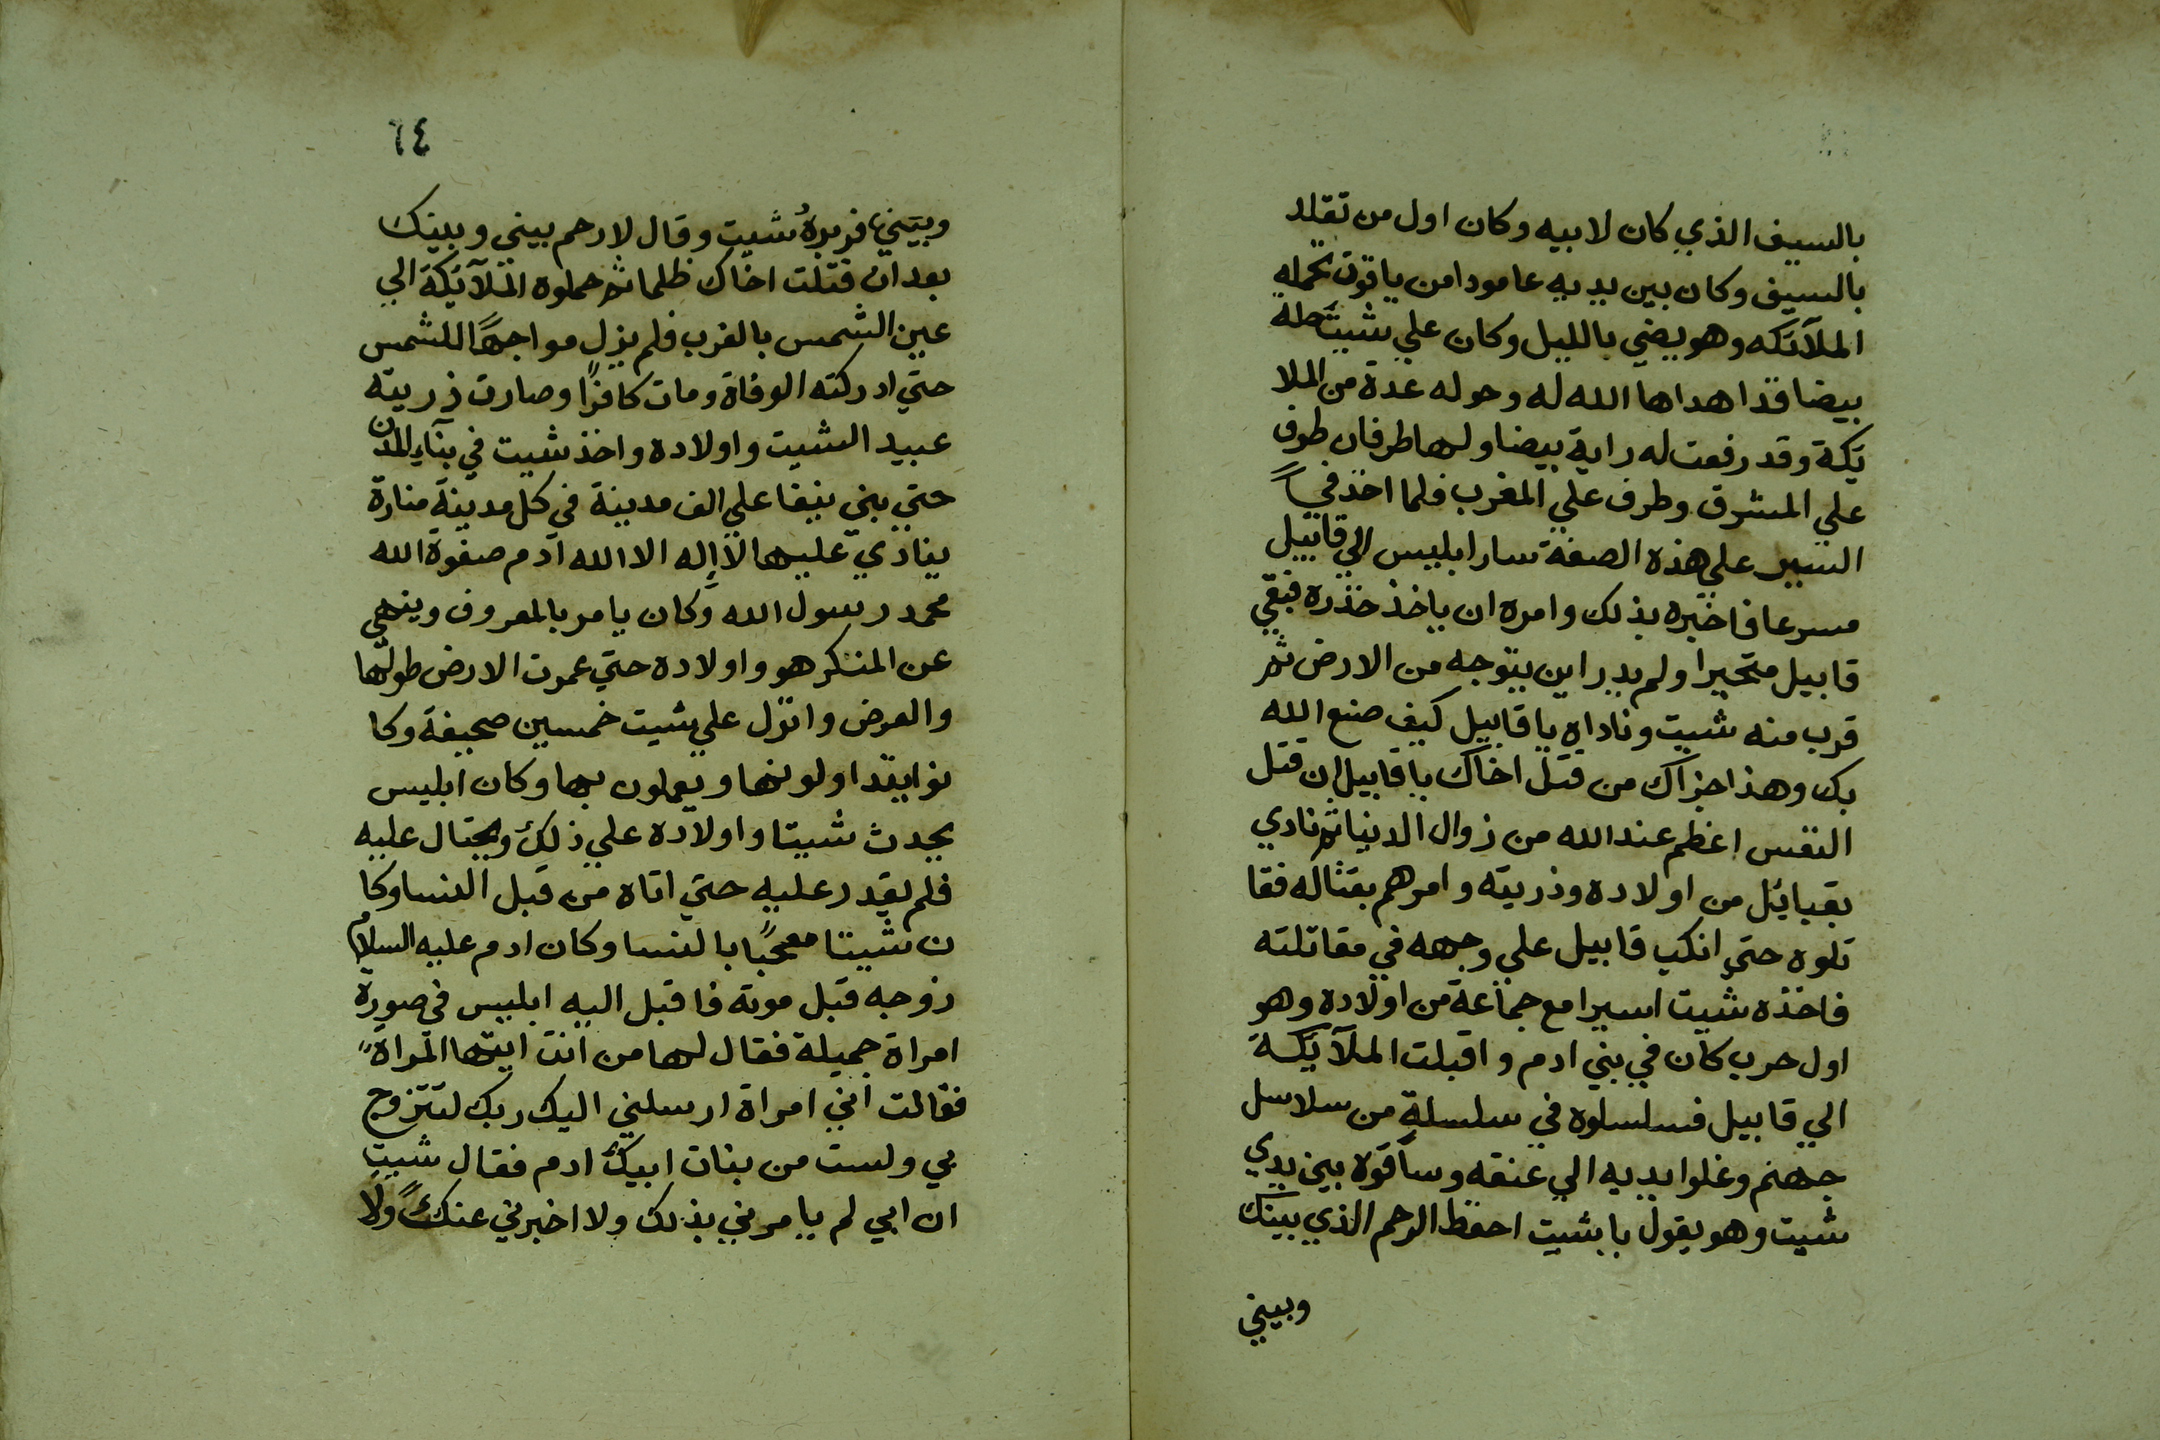 بالسيف الذي كان لابيه وكان اول من تقلد
بالسيف وكان بين يديه عامودا من ياقوت تحمله
الملآئكه وهو يضي بالليل وكان علي شيث حلة
بيضا قد اهداها الله له وحوله عدة من الملا
ئكة وقد رفعت له راية بيضا ولها طرفان طرف
علي المشرق وطرف علي المغرب فلما اخذ في
السير علي هذه الصفة سار ابليس الي قابيل
مسرعا فاخبره بذلك وامره ان ياخذ حذره فبقي
قابيل متحيرا ولم يدر اين يتوجه من الارض ثم
قرب منه شيث وناداه يا قابيل كيف صنع الله
بك وهذا جزاك من قتل اخاك يا قابيل ان قتل
النفس اعظم عند الله من زوال الدنيا ثم نادي
بقبايل من اولاده وذريته وامرهم بقتاله فقا
تلوه حتي انكب قابيل علي وجهه في مقاتلته
فاخذه شيث اسيرا مع جماعة من اولاده وهو
اول حرب كان في بني ادم واقبلت الملآئكة
الي قابيل فسلسلوه في سلسلة من سلاسل
جهنم وغلوا يديه الي عنقه وساقوه بين يدي
شيث وهو يقول يا شيث احفظ الرحم الذي بينك
وبيني
٦٤
وبيني فزبره شيث وقال لا رحم بيني وبينك
بعد ان قتلت اخاك ظلما ثم حملوه الملآئكة الي
عين الشمس بالغرب فلم يزل مواجها للشمس
حتي ادركته الوفاة ومات كافرًا وصارت ذريته
عبيد الشيث واولاده واخذ شيث في بنآء المدن
حتي بني نيفا علي الف مدينة في كل مدينة منارة
ينادي عليها لا إله الا الله آدم صفوة الله
محمد رسول الله وكان يامر بالمعروف وينهي
عن المنكر هو واولاده حتي عمرت الارض طولها
والعرض وانزل علي شيث خمسين صحيفة وكا
نوا يتداولونها ويعملون بها وكان ابليس
يحدث شيثا واولاده علي ذلك ويحتال عليه
فلم يقدر عليه حتي اتاه من قبل النسا وكا
ن شيثا معجبًا بالنسا وكان ادم عليه السلام
زوجه قبل موته فاقبل اليه ابليس في صورة
امراة جميلة فقال لها من انت ايتها المراة
فقالت انني امراة ارسلني اليك ربك لتتزوج
بي ولست من بنات ابيك ادم فقال شيث
ان ابي لم يامرني بذلك ولا اخبرني عنك ولا